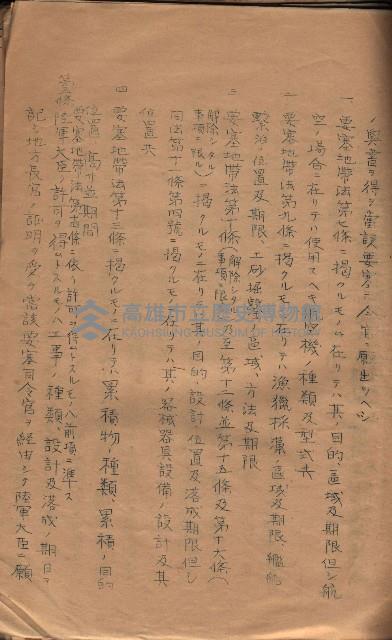 ノ奥書ヲ得シ當該要塞司令官ニ願出ツヘシ
一 要塞地帶法第七條ニ揭クルモノニ在リテハ其ノ目的、區域及期限但シ航
空ノ場合ニ在リテハ使用スヘキ航空機ノ種類及型式共
二 要塞地帶法第九條ニ揭クルモノニ在リテハ漁獵採藻ノ區域及期限、艦船
繫泊ノ位置及期限、土砂掘鑿ノ區域、方法及期限
三 要塞地帶法第十條(解除シタル事項ニ限ル)乃至第十二條並第十五條及第十六條(
解除シタル事項ニ限ル)ニ揭クルモノニ在リテハ其ノ目的設計、位置及落成期限但シ
同法第十一條第四號ニ揭クルモノニ在リテハ其ノ器械器具設備ノ設計及其
位置共
四 要塞地帶法第十三條ニ揭クルモノニ在リテハ累積物ノ種類、累積ノ目的
位置、高サ並期間
要塞地帶法第 條ニ依リ許可ヲ得ムトスルモノハ前項ニ準ス
陸軍大臣ノ許可ヲ得ムトスルモノハ工事ノ種類、設計及落成ノ期日ヲ
記シ地方長官ノ証明ヲ受ケ當該要塞司令官ヲ經由シテ陸軍大臣ニ願
高雄市立歷史博物館
KAOHSIUNG MUSEUM OF HISTORY